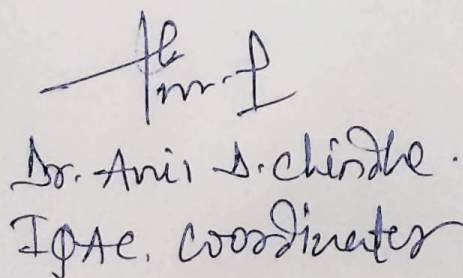 Dr. Anil D. Chindhe.
IQAC. Coordinator